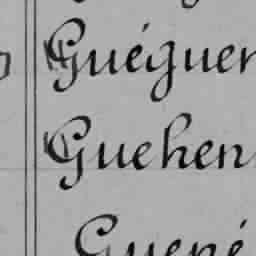 Guéguen
Guehen
Guené